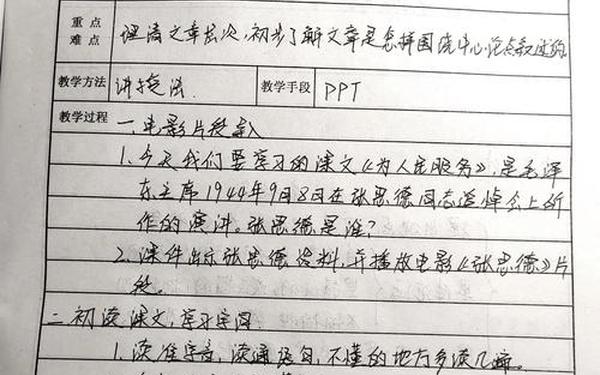 重点
难点
理清文章层次,初步了解文章是怎样围绕中心论点叙述的
教学方法 讲授法 教学手段 PPT
教学过程
一、电影片段导入
1.今天我们要学习的课文《为人民服务》,是毛泽
东主席1944年9月8日在张思德同志追悼会上所
作的演讲。张思德是谁?
2.课件出示张思德资料,并播放电影《张思德》片
段。
二、初读课文,学习字词
1.读准字音,读通语句,不懂的地方多读几遍。